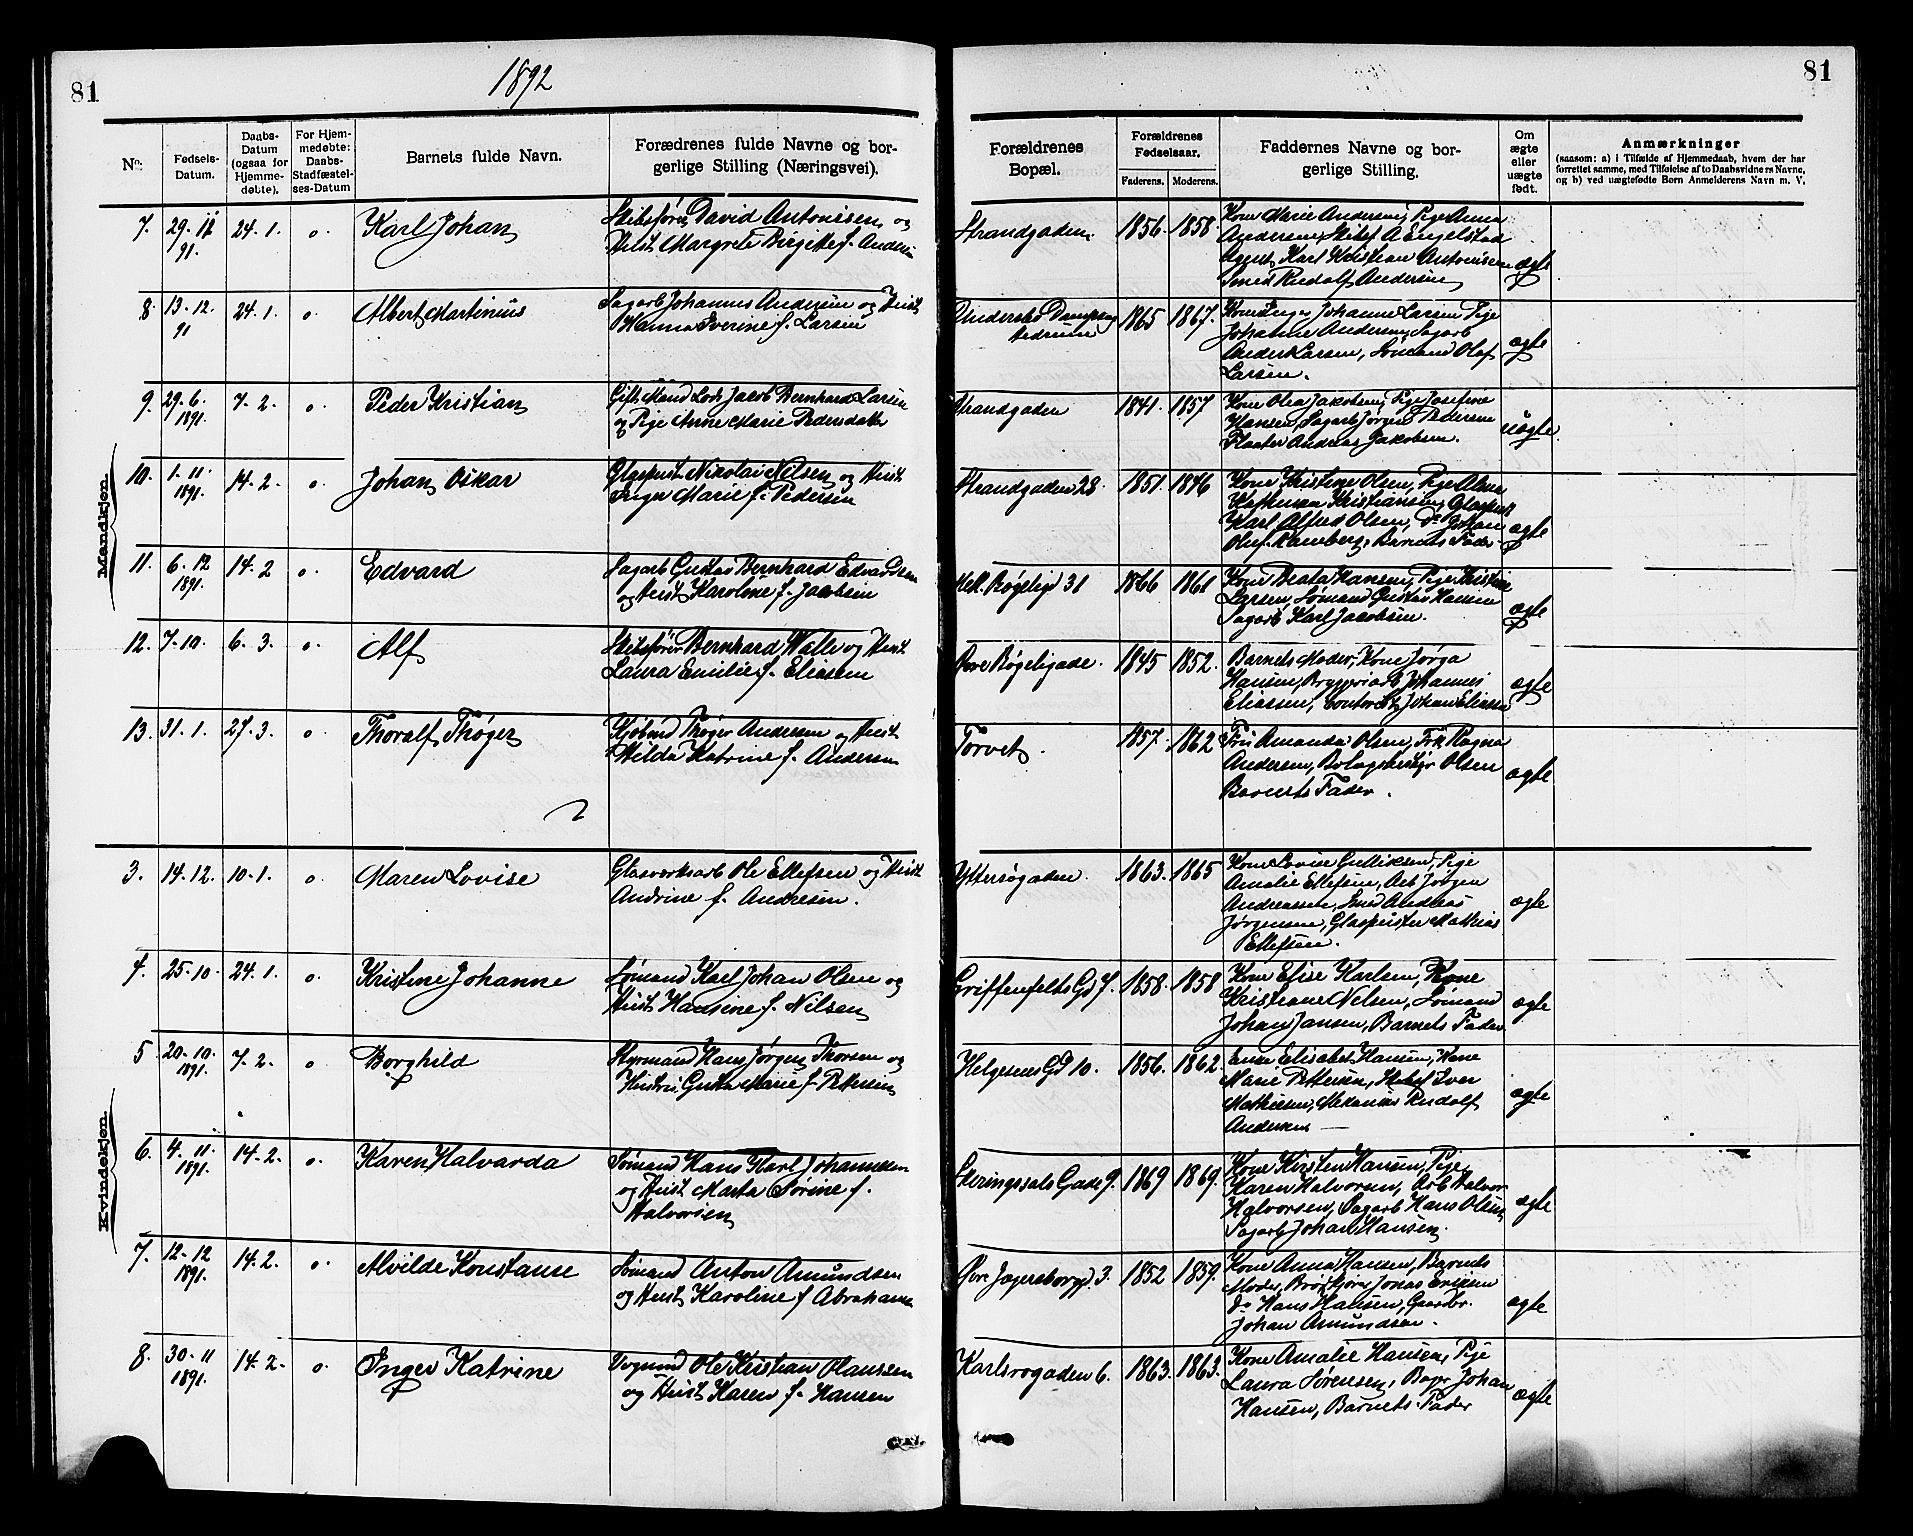 81
1892
81
No.
Fødsels-
Datum.
Daabs-
Datum
(ogsaa for
Hjemme-
døbte).
For Hjem-
medøbte:
Daabs-
Stadfæstel-
ses-Datum
Barnets fulde Navn.
Forædrenes fulde Navne og bor-
gerlige Stilling (Næringsvei).
Forældrenes
Bopæl.
Forældrenes
Fødselsaar.
Faderens.
Moderens.
Faddernes Navne og bor-
gerlige Stilling.
Om
ægte
eller
uægte
født.
Anmærkninger
(saasom: a) i Tilfælde af Hjemmedaab, hvem der har
forrettet samme, med Tilføielse af to Daabsvidners Navne,
og b) ved uægtefødte Børn Anmelderens Navn m. V.
Mandkjøn.
7. 29. 11 91. 24. 1. o. Karl Johan
Skibsfører David Antonisen og
Hust Margrete Birgitte f. Anders
Strandgaden. 1856. 1858
Kone Marie Andersen, Pige Anna
Andersen, Skibsf A Engelstad
Agent Karl Kristian Antonisen
Smed Rudolf Andersen
ægte
8. 13. 12. 91 24. 1. o. Albert Martinius
Sagarb Johannes Andersen og Hust
Hanna Iverine f. Larsen
1865 1867.
Kone Inger Johanne Larsen, Pige
Johanne Andersen, Sagarb
Anders Larsen, Sömand Olaf
Larsen.
ægte
9. 29. 6. 1891. 7. 2. o. Peder Kristian
Gift Mand Lods Jacob Bernhard Larsen
og Pige Anne Marie Pedersdatter
Strandgaden 1841. 1857
Kone Olea Jakobsen, Pige Josefine
Hansen, Sagarb Jørgen Pedersen
Andreas Jakobsen.
uægte
10. 1. 11. 1891. 14. 2. o. Johan Oskar
Glaspust. Nicolai Nilsen og Hust
Inger Marie f. Pedersen
Strandgaden 28. 1851. 1846
Kone Kristine Olsen, Pige
Kristiansen, Glaspust
Karl Alfred Olsen, Do Johan
Oluf Ramberg, Barnets Fader
ægte
11. 6. 12 1891. 14. 2 o. Edvard
Sagarb Gustav Bernhard Edvardsen
og Hust Karoline f. Jacobsen
Bøgeligd 31 1866 1861
Kone Beata Hansen, Pige Kristine
Larsen, Sömand Gustav Hansen
Sagarb Karl Jacobsen.
ægte
12. 7. 10. 6. 3. o. Alf
Skibsfører Bernhard Walle og Hust
Laura Emilie f. Eliasen
Øvre Bøgeligade. 1845 1852.
Barnets Moder, Kone Jørga
Hansen, Bryggeriarb Johannes
Eliassen, Contorist Johan Eliasen
ægte
13. 31. 1. 27. 3. o. Thoralf Thøger
Kjøbmd Thøger Andersen og Hust
Hilda Katrine f. Andersen
Torvet. 1857. 1862
Fru Amanda Olsen, Frk Ragna
Andersen, Olsen
Barnets Fader.
ægte
Kvindekjøn.
3. 14. 12. 10. 1. o. Maren Lovise
Glasverksarb Ole Ellefsen og Hust
Andrine f. Andresen.
Yttersøgaden. 1863. 1865
Kone Lovise Gulliksen, Pige
Amalie Ellefsen, Arb Jørgen
Andreassen, Smed Andreas
Jørgensen, Glaspuster Mathias
Ellefsen.
ægte
4. 25. 10. 24. 1. o. Kristine Johanne
Sömand Karl Johan Olsen og
Hust Hansine f. Nilsen
Griffenfelts Gd 1. 1858. 1858
Kone Elise Karlsen, Kone
Kristiane Nilsen, Sömand
Johan Jansen, Barnets Fader.
ægte
5 20. 10. 1891. 7. 2. o Borghild
Styrmand Hans Jørgen Thorsen og
Hustru Gusta Marie f. Pettersen
Helgesens Gd 10. 1856. 1862.
Enke Elisabet Hansen, Kone
Marie Pettersen, Skibsf Iver
Mathiesen, Mekaniker Rudolf
Andersen
ægte
6. 4. 11. 1891. 14. 2. o. Karen Halvarda
Sömand Hans Karl Johannesen
og Hust Marta Sørine f.
Halvorsen
Skiringssals Gade 9. 1869 1869.
Kone Kirsten Hansen, Pige
Karen Halvorsen, Arb Halvor
Halvorsen, Sagarb Hans Olsen
Sagarb Johan Hansen.
ægte
7. 12. 12 1891. 14. 2. o. Alvilde Konstanse
Sömand Anton Amundsen
og Hust Karoline f Abrahams
Øvre Jegersborggd. 3. 1852 1859.
Kone Anna Hansen, Barnets
Moder, Jonas Eriksen
do Hans Hansen, Gaardbr.
Johan Amundsen.
ægte
8. 30. 11 1891. 14. 2. o. Inger Katrine
Vognmd Ole Kristian Olaussen
og Hust Karen f. Hansen
Karlsrogaden 6. 1863. 1863.
Kone Amalie Hansen, Pige
Laura Sørensen, Johan
Hansen, Barnets Fader
ægte